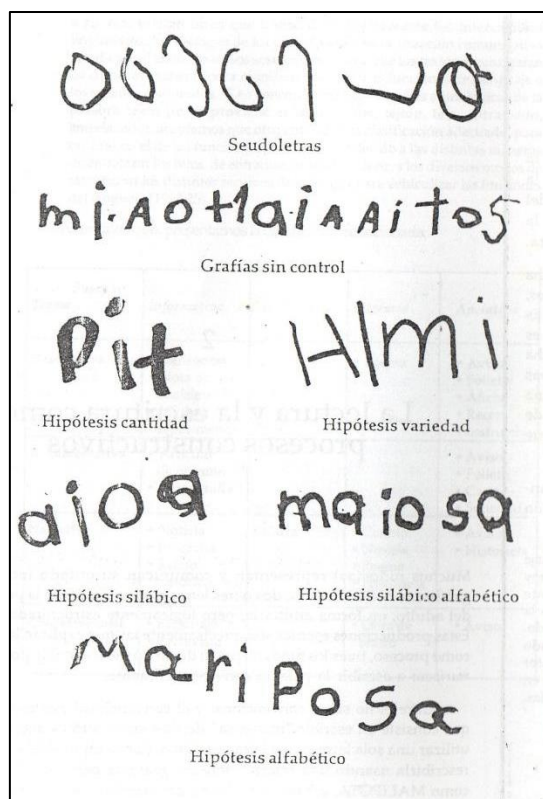 Seudoletras
mi.AotlaiAAitos
Grafías sin control
Pit
HImi
Hipótesis cantidad
Hipótesis variedad
aioa
maiosa
Hipótesis silábico
Hipótesis silábico alfabético
Mariposa
Hipótesis alfabético